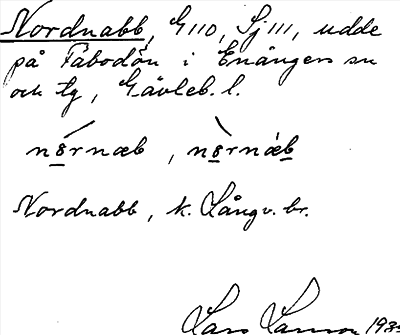 Nordnabb, G110, Sj111, udde
på Fäbodön i Enångers sn
och tg, Gävleb. l.
n8rnæb, n8rnæb
Nordnabb, k. Långv. br.
Lars Larsson